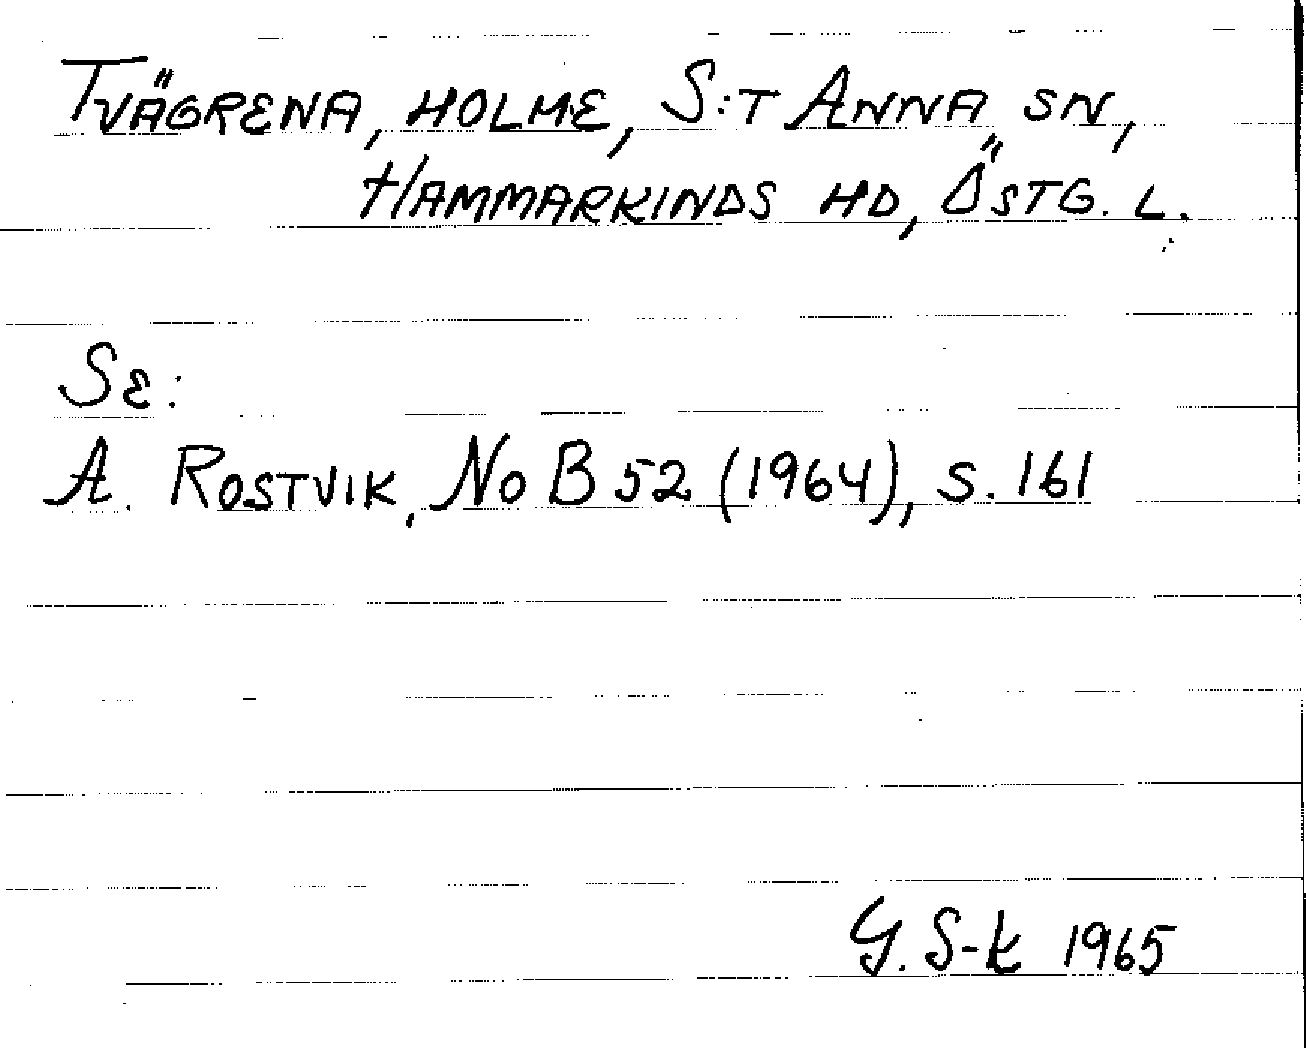 TVÄGRENA, HOLME, S:T ANNA SN,
HAMMARKINDS HD, ÖSTG. L.
SE:
A. ROSTVIK, NoB 52 (1964), S. 161
G. S-k 1965